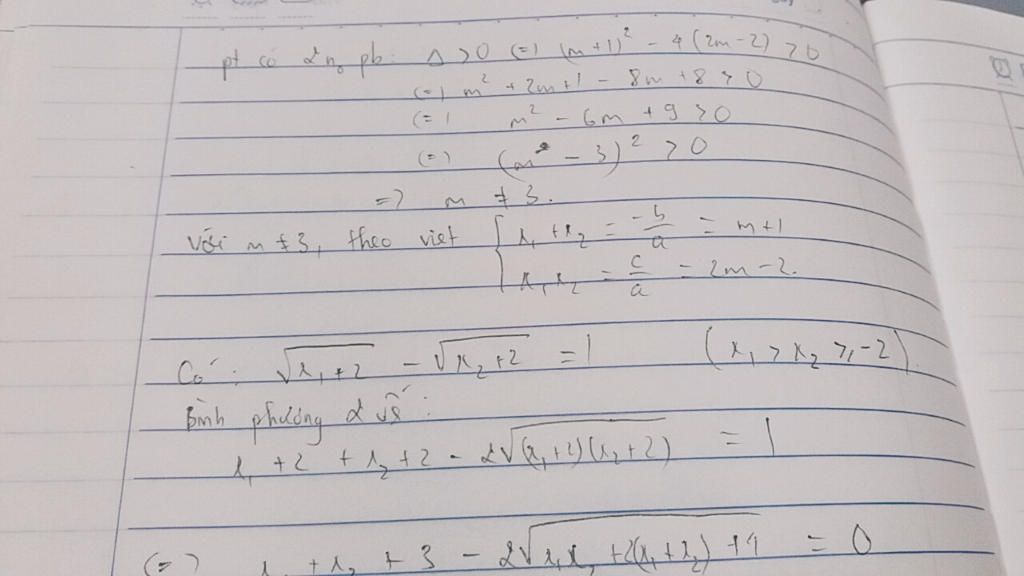 pt có 2 n₀ pb: Δ > 0 (=) (m+1)² - 4(2m-2) > 0
(=) m² + 2m + 1 - 8m + 8 > 0
(=) m² - 6m + 9 > 0
(=) (m - 3)² > 0
=> m ≠ 3.
Với m ≠ 3, theo viet { x₁ + x₂ = -b/a = m+1
x₁x₂ = c/a = 2m-2.
Có: √(x₁+2) - √(x₂+2) = 1 (x₁ > x₂ ≥ -2).
Bình phương 2 vế:
x₁ + 2 + x₂ + 2 - 2√((x₁+2)(x₂+2)) = 1
(=) x₁ + x₂ + 3 - 2√(x₁x₂ + 2(x₁+x₂) + 4) = 0